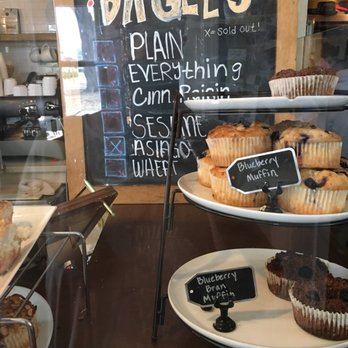 BAGELS
X = Sold out!
PLAIN
EVERYthing
Cinn. Raisin
SESAME
ASIAGO
WHEAT
Blueberry
Muffin
Blueberry
Bran
Muffin